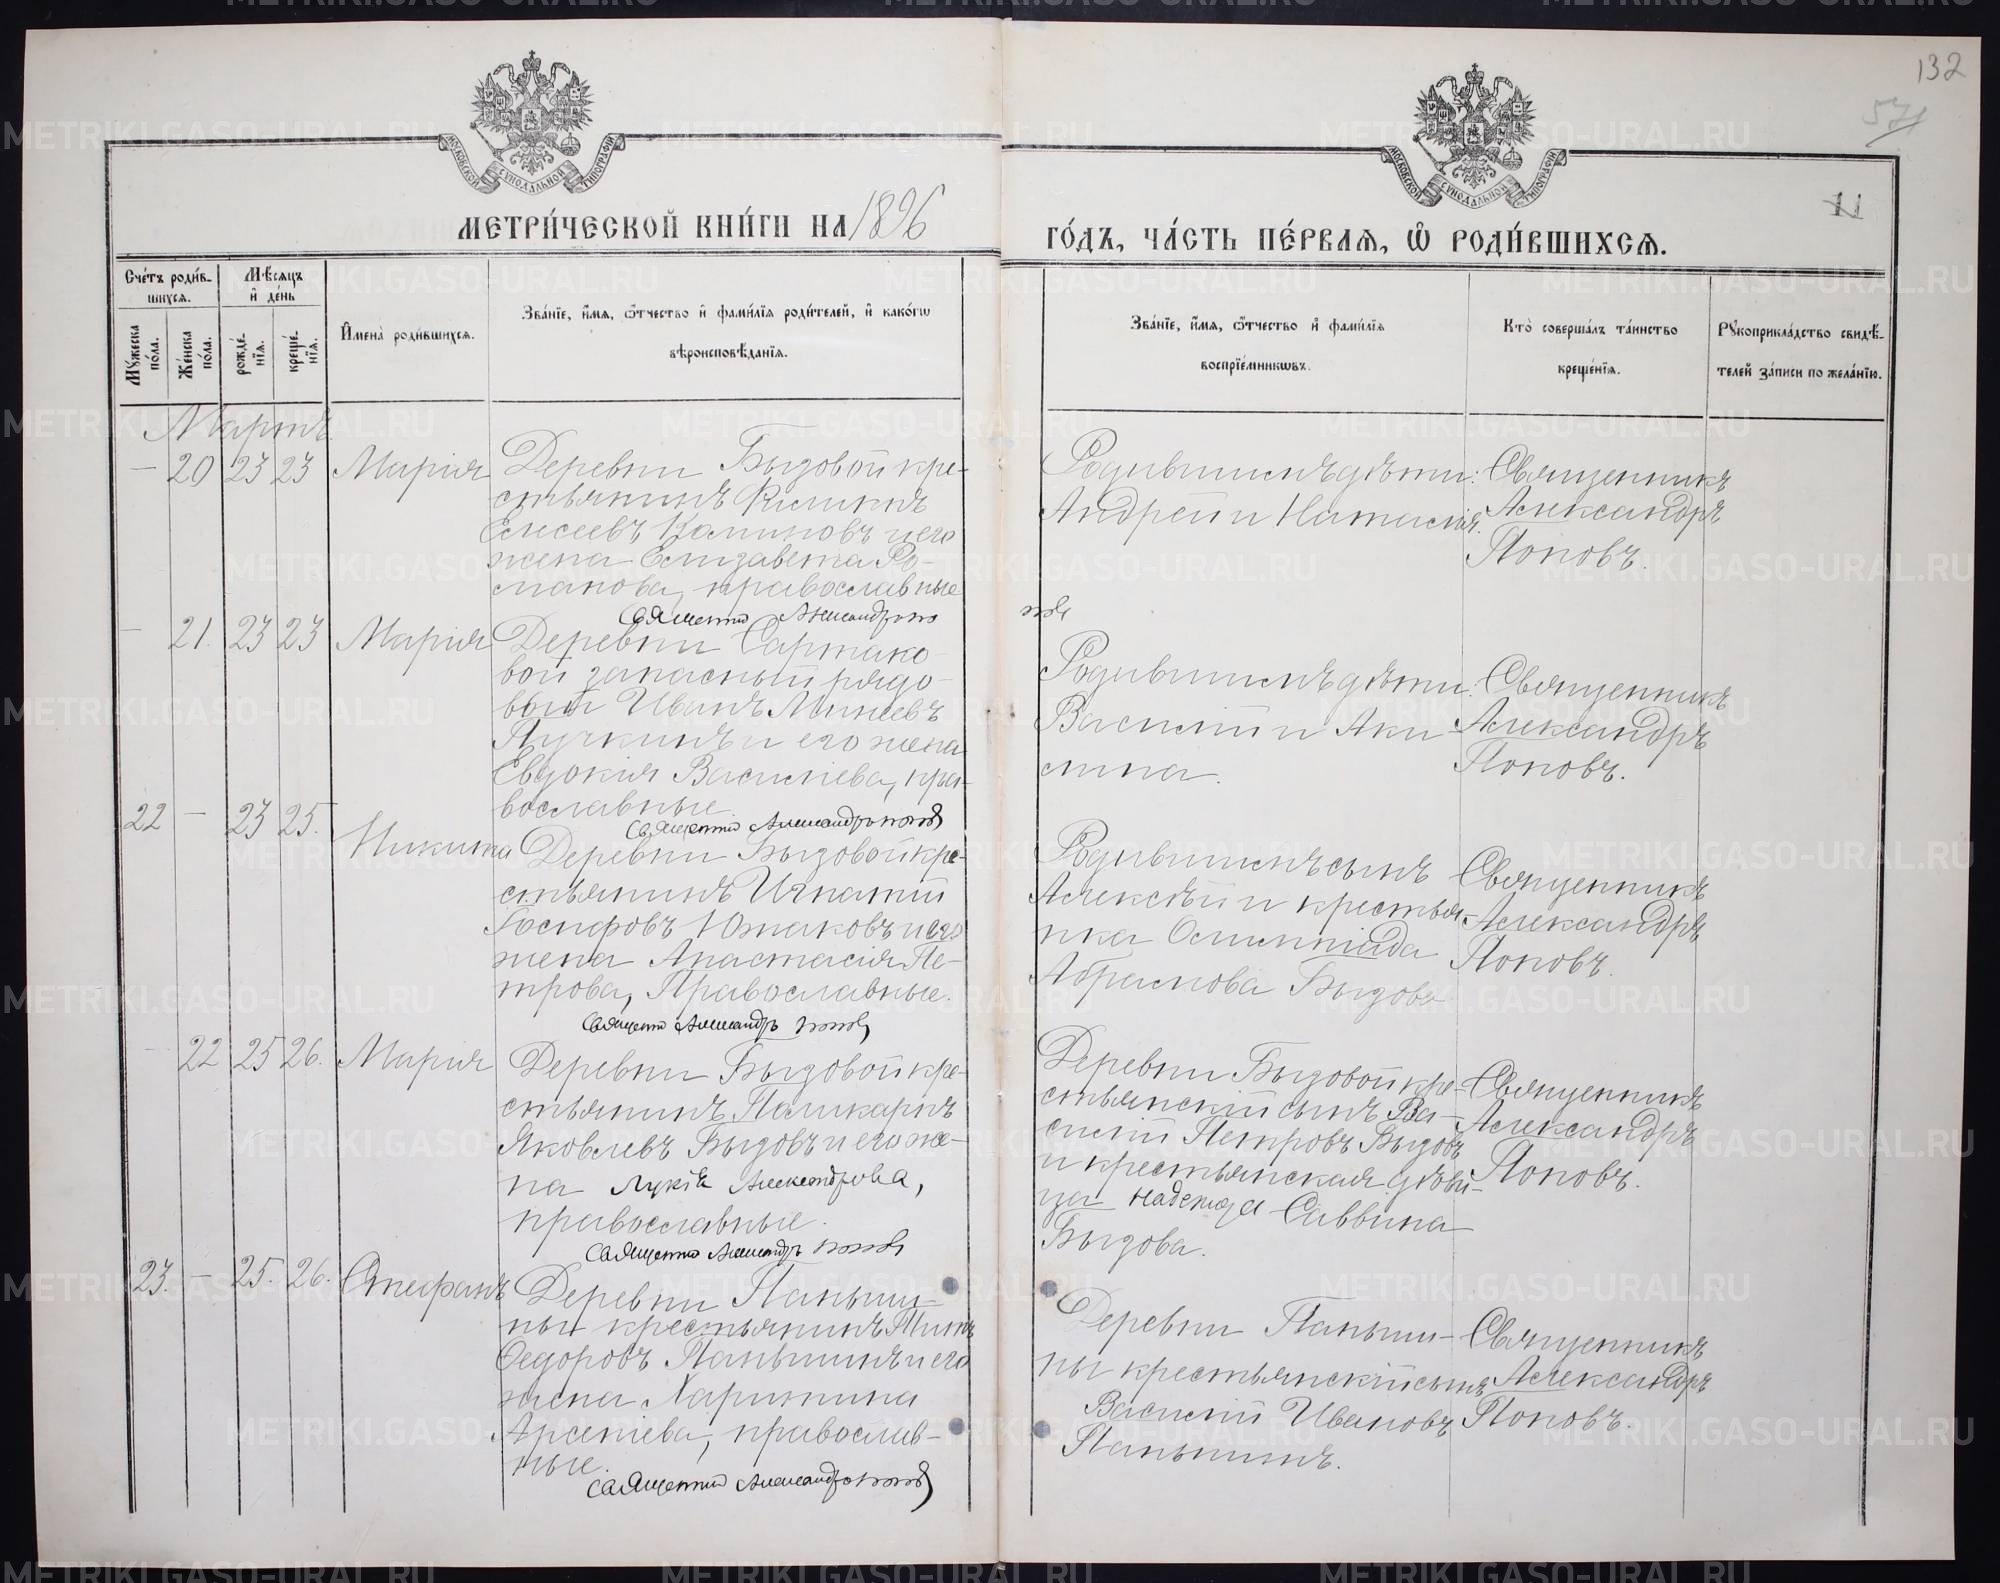 132
571
11
МОСКОВСКОЙ СѴНОДАЛЬНОЙ ТИПОГРАФІИ
МОСКОВСКОЙ СѴНОДАЛЬНОЙ ТИПОГРАФІИ
МЕТРИ́ЧЕСКОЙ КНИ́ГИ НА 1896
ГО́ДЪ, ЧА́СТЬ ПЕ́РВАЯ, Ѽ РОДИ́ВШИХСЯ.
Сче́тъ роди́в-
шихся.
Му́жеска по́ла.
Же́нска по́ла.
Мѣ́сяцъ
и҆ де́нь
рожде́-
нїя.
креще́-
нїя.
И҆мена̀ роди́вшихся.
Зва́нїе, и҆́мя, ѻ҆́тчество и҆ фами́лїя роди́телей, и҆ како́гѡ
вѣроисповѣ́данїя.
Зва́нїе, и҆́мя, ѻ҆́тчество и҆ фами́лїя
воспрїе́мникѡвъ.
Кто̀ соверша́лъ та́инство
креще́нїя.
Рꙋкоприкла́дство свидѣ́-
телей за́писи по жела́нїю.
Мартъ.
— 20 23 23 Марія
Деревни Быздовой кре-
стьянинъ Филиппъ
Елисеевъ Калиновъ и его
жена Елизавета Ро-
манова, православные
Священник Александр Попов
Родившимъ дѣти:
Андрей и Наталія.
Священникъ
Александръ
Поповъ.
— 21. 23 23 Марія
Деревни Сартако-
вой запасный рядо-
вый Иванъ Минеевъ
Пучкинъ и его жена
Евдокія Василіева, пра-
вославные.
Священник Александр Попов
Родившимъ дѣти:
Василій и Аки-
лина.
Священникъ
Александръ
Поповъ.
22 — 23 25. Никита
Деревни Быздовой кре-
стьянинъ Игнатій
Іосифовъ Южаковъ и его
жена Анастасія Пе-
трова, Православные.
Священник Александръ Попов
Родившимъ сынъ
Алексѣй и крестья-
нка Олимпіада
Абрамова Быздова
Священникъ
Александръ
Поповъ.
— 22 25 26. Марія
Деревни Быздовой кре-
стьянинъ Поликарпъ
Яковлевъ Быздовъ и его же-
на Лукія Александрова,
православные.
Священник Александръ Попов
Деревни Быздовой кре-
стьянскій сынъ Ва-
силій Петровъ Быздовъ
и крестьянская дѣви-
ца Надежда Саввина
Быздова.
Священникъ
Александръ
Поповъ.
23. — 25. 26. Стефанъ
Деревни Паньши-
ны крестьянинъ Титъ
Ѳедоровъ Паньшинъ и его
жена Харитина
Арсеніева, православ-
ные.
Священник Александр Попов
Деревни Паньши-
ны крестьянскій сынъ
Василій Ивановъ
Паньшинъ.
Священникъ
Александръ
Поповъ.